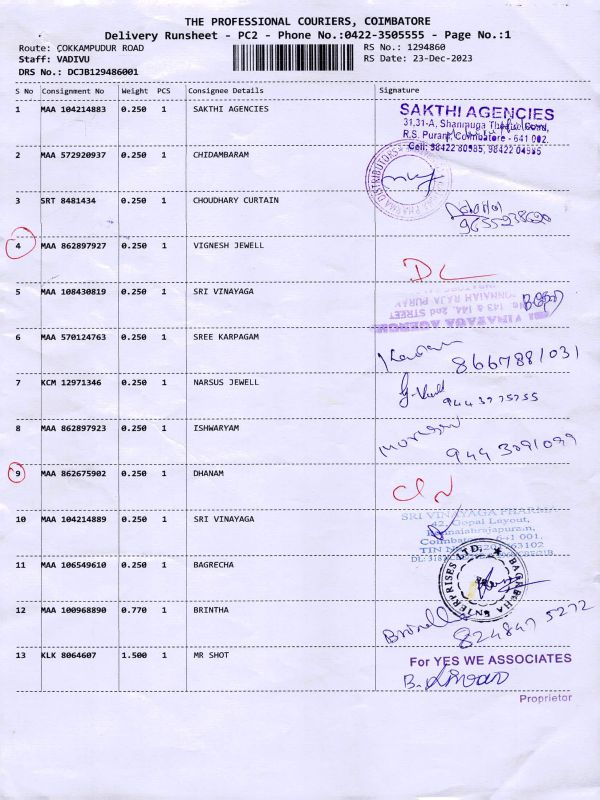 THE PROFESSIONAL COURIERS, COIMBATORE
Delivery Runsheet - PC2 - Phone No.:0422-3505555 - Page No.:1
Route: COKKAMPUDUR ROAD
RS No.: 1294860
Staff: VADIVU
RS Date: 23-Dec-2023
DRS No.: DCJB129486001
S No Consignment No Weight PCS Consignee Details Signature
1 MAA 104214883 0.250 1 SAKTHI AGENCIES
SAKTHI AGENCIES
31,31-A, Shanmuga
R.S. Puram, Coimbatore - 641 002.
Cell: 98422 80585, 98422 04585
2 MAA 572920937 0.250 1 CHIDAMBARAM
3 SRT 8481434 0.250 1 CHOUDHARY CURTAIN
9655238620
4 MAA 862897927 0.250 1 VIGNESH JEWELL
DL
5 MAA 108430819 0.250 1 SRI VINAYAGA
SRI VINAYAGA AGENCY
143 & 144, 2nd STREET
PONNAIAH RAJA PURAM
6 MAA 570124763 0.250 1 SREE KARPAGAM
8667881031
7 KCM 12971346 0.250 1 NARSUS JEWELL
8 MAA 862897923 0.250 1 ISHWARYAM
9443091099
9 MAA 862675902 0.250 1 DHANAM
10 MAA 104214889 0.250 1 SRI VINAYAGA
SRI VINAYAGA PHARMA
42, Gopal Layout,
Ponnaiahrajapuram,
Coimbatore 641 001.
11 MAA 106549610 0.250 1 BAGRECHA
BAGRECHA ENTERPRISES LTD.
12 MAA 100968890 0.770 1 BRINTHA
824847 5272
13 KLK 8064607 1.500 1 MR SHOT
For YES WE ASSOCIATES
Proprietor